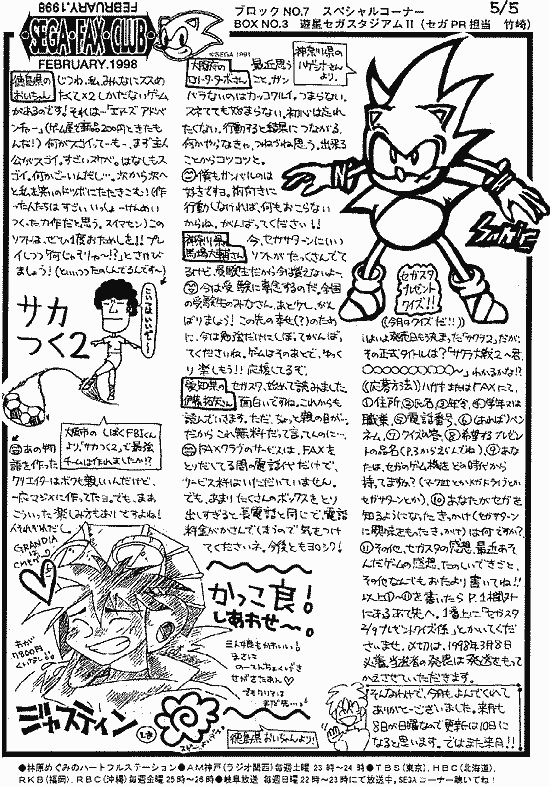 FEBRUARY.1998
SEGA・FAX・CLUB
FEBRUARY.1998
ブロックNO.7 スペシャルコーナー
5/5
BOX NO.3 遊星セガスタジアムⅡ(セガPR担当 竹崎)
©SEGA 1991
徳島県の
おいちゃん
じつわ、私、みんなにススめ
たくて×2しかたないゲーム
があるのです!それは…「エアーズアドベ
ンチャー」
まず主人
公がスゴイ。
はなしもス
ゴイ。何かごーいんだし…。次から次へ
と私を笑いのドツボにたたきこむ!(作
った人たちは、すごいいっしょーけんめい
つくった力作だと思う。スイマセン)この
ソフトは、ぜひ1度おためしを!!プレ
イしつつ
とさけび
ましょう!
サカ
つく2
こいつはいいぞー!
大阪市の しばくFBIくん
より。「サカつく2」で最強
チームは作れましたかー!?
あの物
語を作った
クリエイターはボクも親しいんだけど、
一応マジメに作ってたョ。でも、まぁ
こういった楽しみ方もありですよね!
大阪市の
ロ・リ・タ・タ・ポさん
最近思う
こと。ガン
神奈川県の
ハゲシさん
より。
バらないのはカッコワルイ。つまらない。
スネてても始まらない。初心は忘れ
たくない。行動すると結果につながる。
何かやらなきゃ、つねづね思う。出来る
ことからコツコツと。
僕もガンバルのは
好きですョ。前向きに
行動しなければ、何もおこらない
からね。がんばってください!!
神奈川県の
馬場大輔さん
今、セガサターンにいい
ソフトがたっくさんでて
るけど、受験生だから今は買えないよー。
今は受験に専念するのだ。全国
の受験生のみなさん、まとめて、しっかりがん
ばりましょう!この先の幸せ(?)のため
に、今は勉強だけにしぼってがんばっ
てくださいね。ゲームはそのあとで、ゆっく
り楽しもう!!応援してるぞ。
愛知県の
伊藤裕矢さん
セガスタ、初めて読みました。
面白いですね。これからも
読んでいきます。ただ、ちょっと親の目が…。
だから これ無料だって言ってんのに…。
FAXクラブのサービスは、FAXを
とりだしてる間の電話代だけで、
サービス料はいただいていません。
でも、あまりたくさんのボックスをとり
出しすぎると長電話と同じで、電話
料金がかさんでくるので気をつけ
てくださいネ。今後ともヨロシク!
SONIC
セガスタ
プレゼント
クイズ!!
(今月のクイズだ!!)
いよいよ発売日も決まった「サクラ2」だが、
その正式タイトルは?「サクラ大戦2〜君、
○○○○○○○○〜」わかるかな!?
(応募方法)ハガキまたはFAXにて、
①住所、②氏名、③年令、④学年又は
職業、⑤電話番号、⑥(あれば)ペン
ネーム、⑦クイズの答、⑧希望するプレゼン
トの品名(P.3から選んでね)、⑨あな
たは、セガのゲーム機はどの時代から
持ってますか?(マークⅢとかメガドライブとか
セガサターンとか)、⑩あなたがセガを
知るようになったきっかけ(セガサターン
に興味をもったきっかけ)は何ですか?
⑪その他、セガスタの感想、最近あそ
んだゲームの感想、たのしいできごと、
その他なんでもおたより書いてね!!
以上①〜⑪を書いたらP.1欄外
にあるあて先へ。1番上に「セガスタ
2/9プレゼントクイズ係」とかいてくだ
さいませ。〆切は、1998年3月8日
必着。当選者の発表は発送をもって
かえさせていただきます。
そんなわけで、今月もよんでくれて
ありがとーございました。来月も
8日が日曜なんで更新は10日に
なると思います。ではまた来月!!
GRANDIA
かっこ良!
しあわせ〜。
ジャスティン
徳島県の おいちゃんより!
●林原めぐみのハートフルステーション●AM神戸(ラジオ関西)毎週土曜 23時〜24時 ●TBS(東京)、HBC(北海道)、
RKB(福岡)、RBC(沖縄)毎週金曜 25時〜26時 ●岐阜放送 毎週日曜 22時〜23時にて放送中。SEGAコーナー聴いてね!